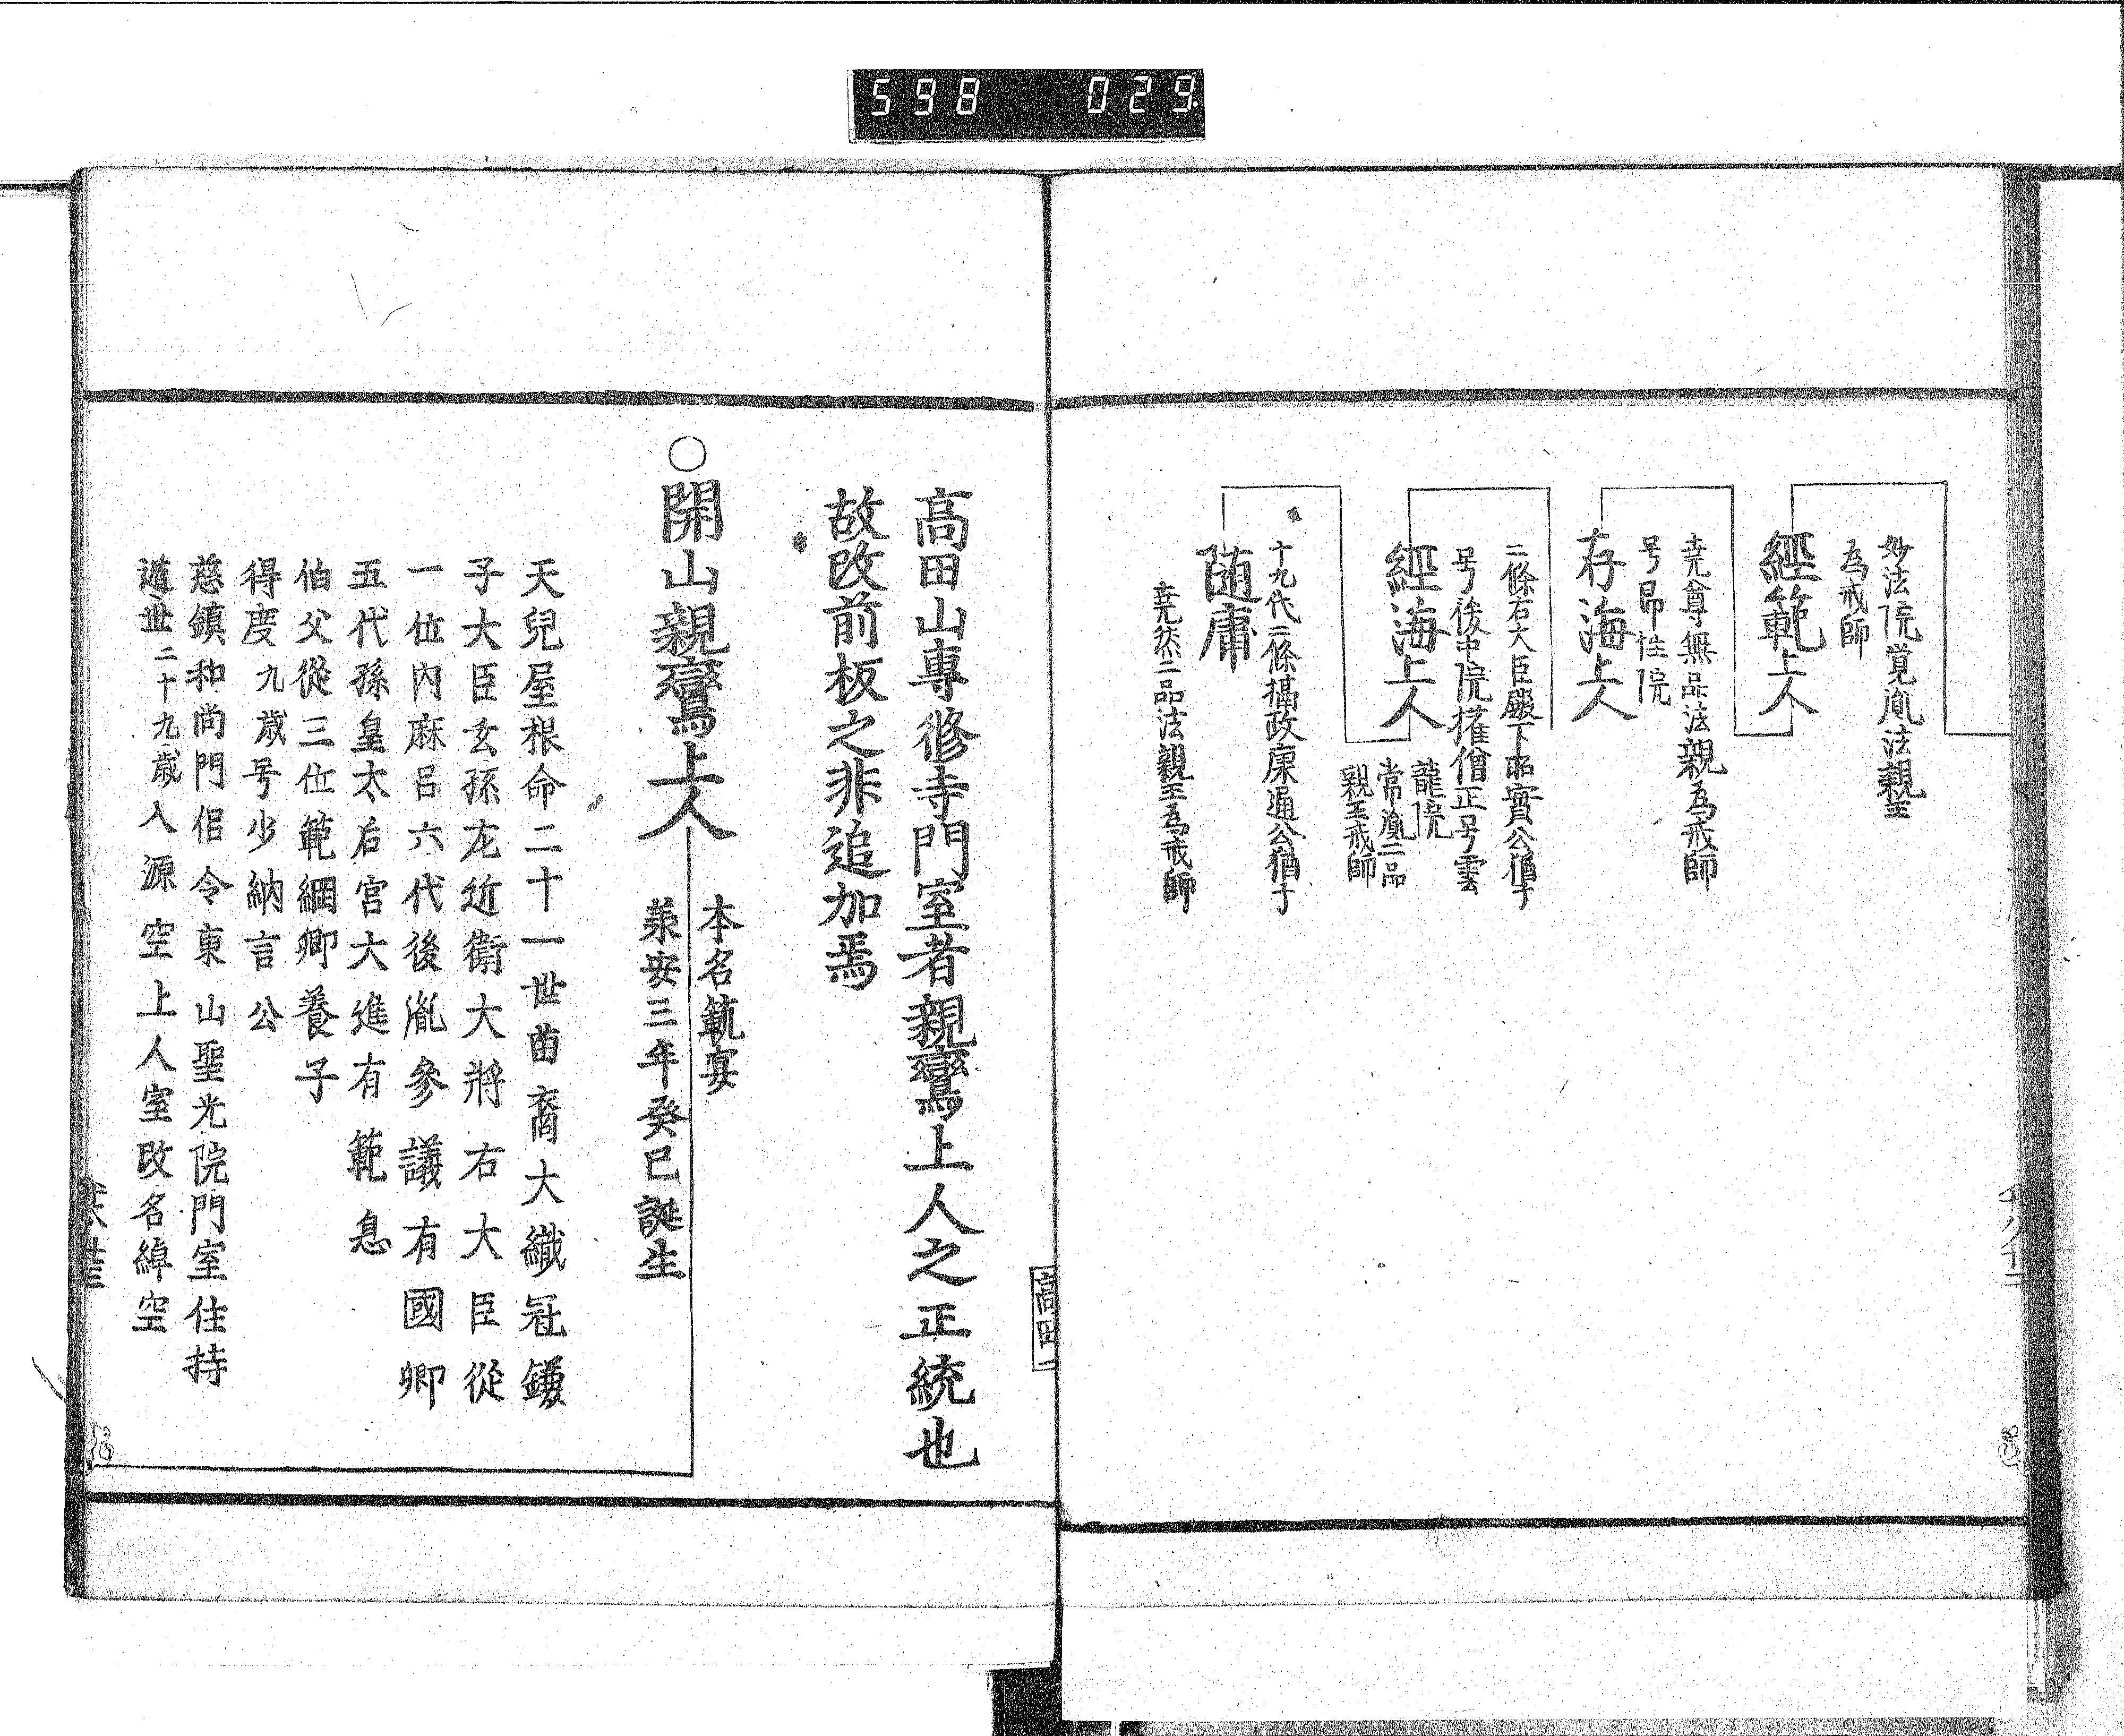 598 029
妙法院覚胤法親王
為戒師
經範上人
尭尊無品法親為戒師
号昂性院
存海上人
二條右大臣殿下昭實公猶子
号後中院權僧正号雲
龍院
常胤二品
親王戒師
經海上人
十九代二條攝政康通公猶子
随庸
尭然二品法親王為戒師
高田山專修寺門室者親鸞上人之正統也
故改前板之非追加焉
○開山親鸞上人
本名範宴
承安三年癸巳誕生
天兒屋根命二十一世苗裔大織冠鎌
子大臣玄孫左近衛大將右大臣從
一位內麻呂六代後胤參議有國卿
五代孫皇太后宮大進有範息
伯父從三位範綱卿養子
得度九歲号少納言公
慈鎮和尚門侶令東山聖光院門室住持
遁世二十九歲入源空上人室改名綽空
高田一